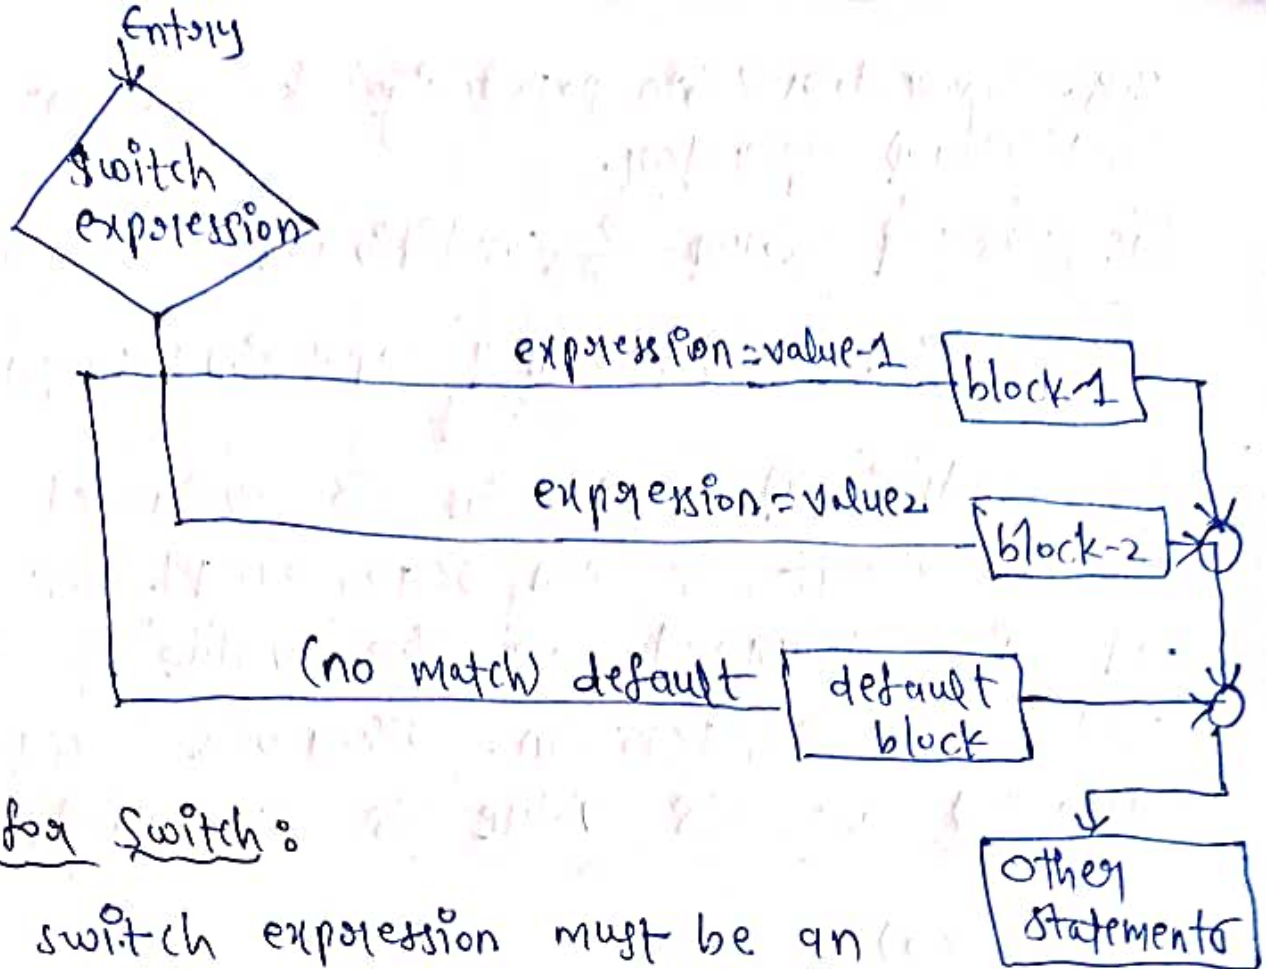 Entry
switch
expression
expression=value-1
block-1
expression=value2
block-2
(no match) default
default
block
for Switch:
Other
statements
switch expression must be an